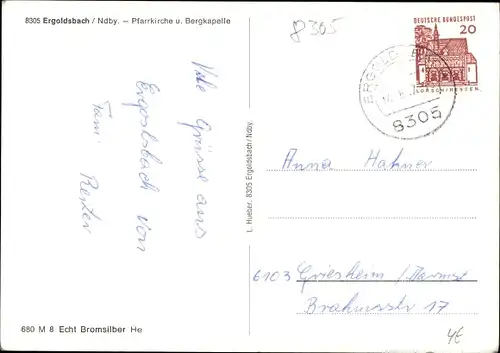 8305 Ergoldsbach / Ndby. – Pfarrkirche u. Bergkapelle
8305
DEUTSCHE BUNDESPOST
20
LORSCH/HESSEN
ERGOLDSB
8305
Viele Grüsse aus
Ergolsbach von
Fam. Reiter
L. Hueber, 8305 Ergoldsbach/Ndby.
Anna Hahner
6103 Griesheim /
Brahmsstr 17
680 M 8 Echt Bromsilber He
4E